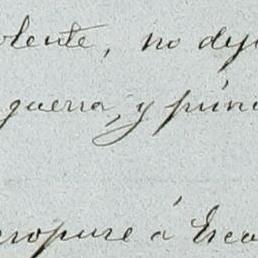 olente, no dej
guerra, y prin
ropuse á Esca